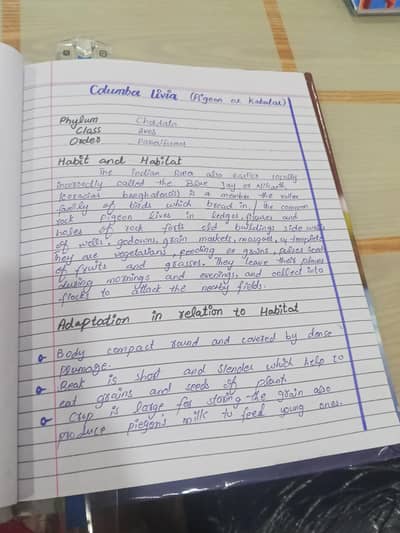 Columba livia (Pigeon or Kabutar)
Phylum Chordata
Class aves
Order Passeriformes
Habit and Habitat
The Indian also earlier locally
incorrectly called the Blue Jay or Nilkanth
benghalensis) is a member the roller
family of birds which breed in the common
rock pigeon lives in ledges, places and
holes of rock forts old buildings side walls
of wells, godowns, grain markets, mosques,
They are vegetarians, feeding on grains, pulses seeds
of fruits and grasses. They leave their places
during mornings and evenings, and collect into
flocks to attack the nearby fields.
Adaptation in relation to Habitat
Body compact round and covered by dense
Plumage.
Beak is short and slender which help to
eat grains and seeds of plant.
Crop is large for storing the grain also
produce piegon's milk to feed young ones.